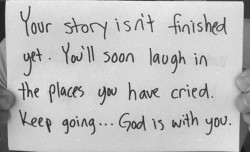 Your story isn't finished
yet. You'll soon laugh in
the places you have cried.
Keep going... God is with you.